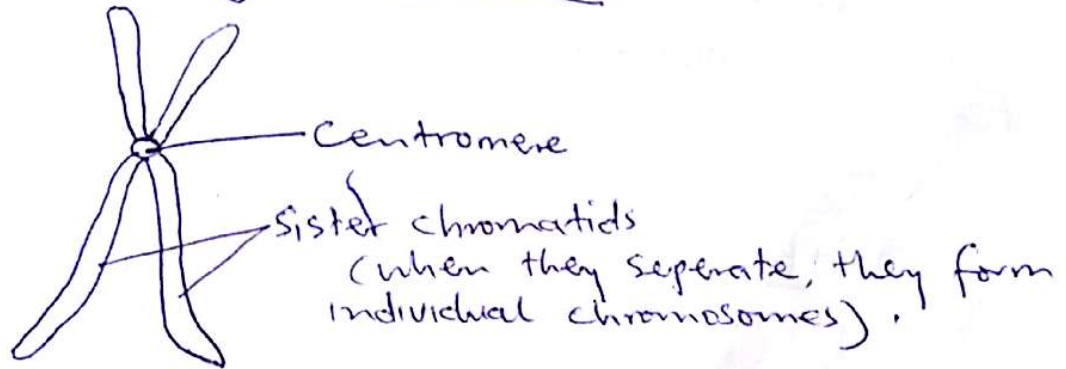 Centromere
Sister chromatids
(when they seperate, they form
individual chromosomes).